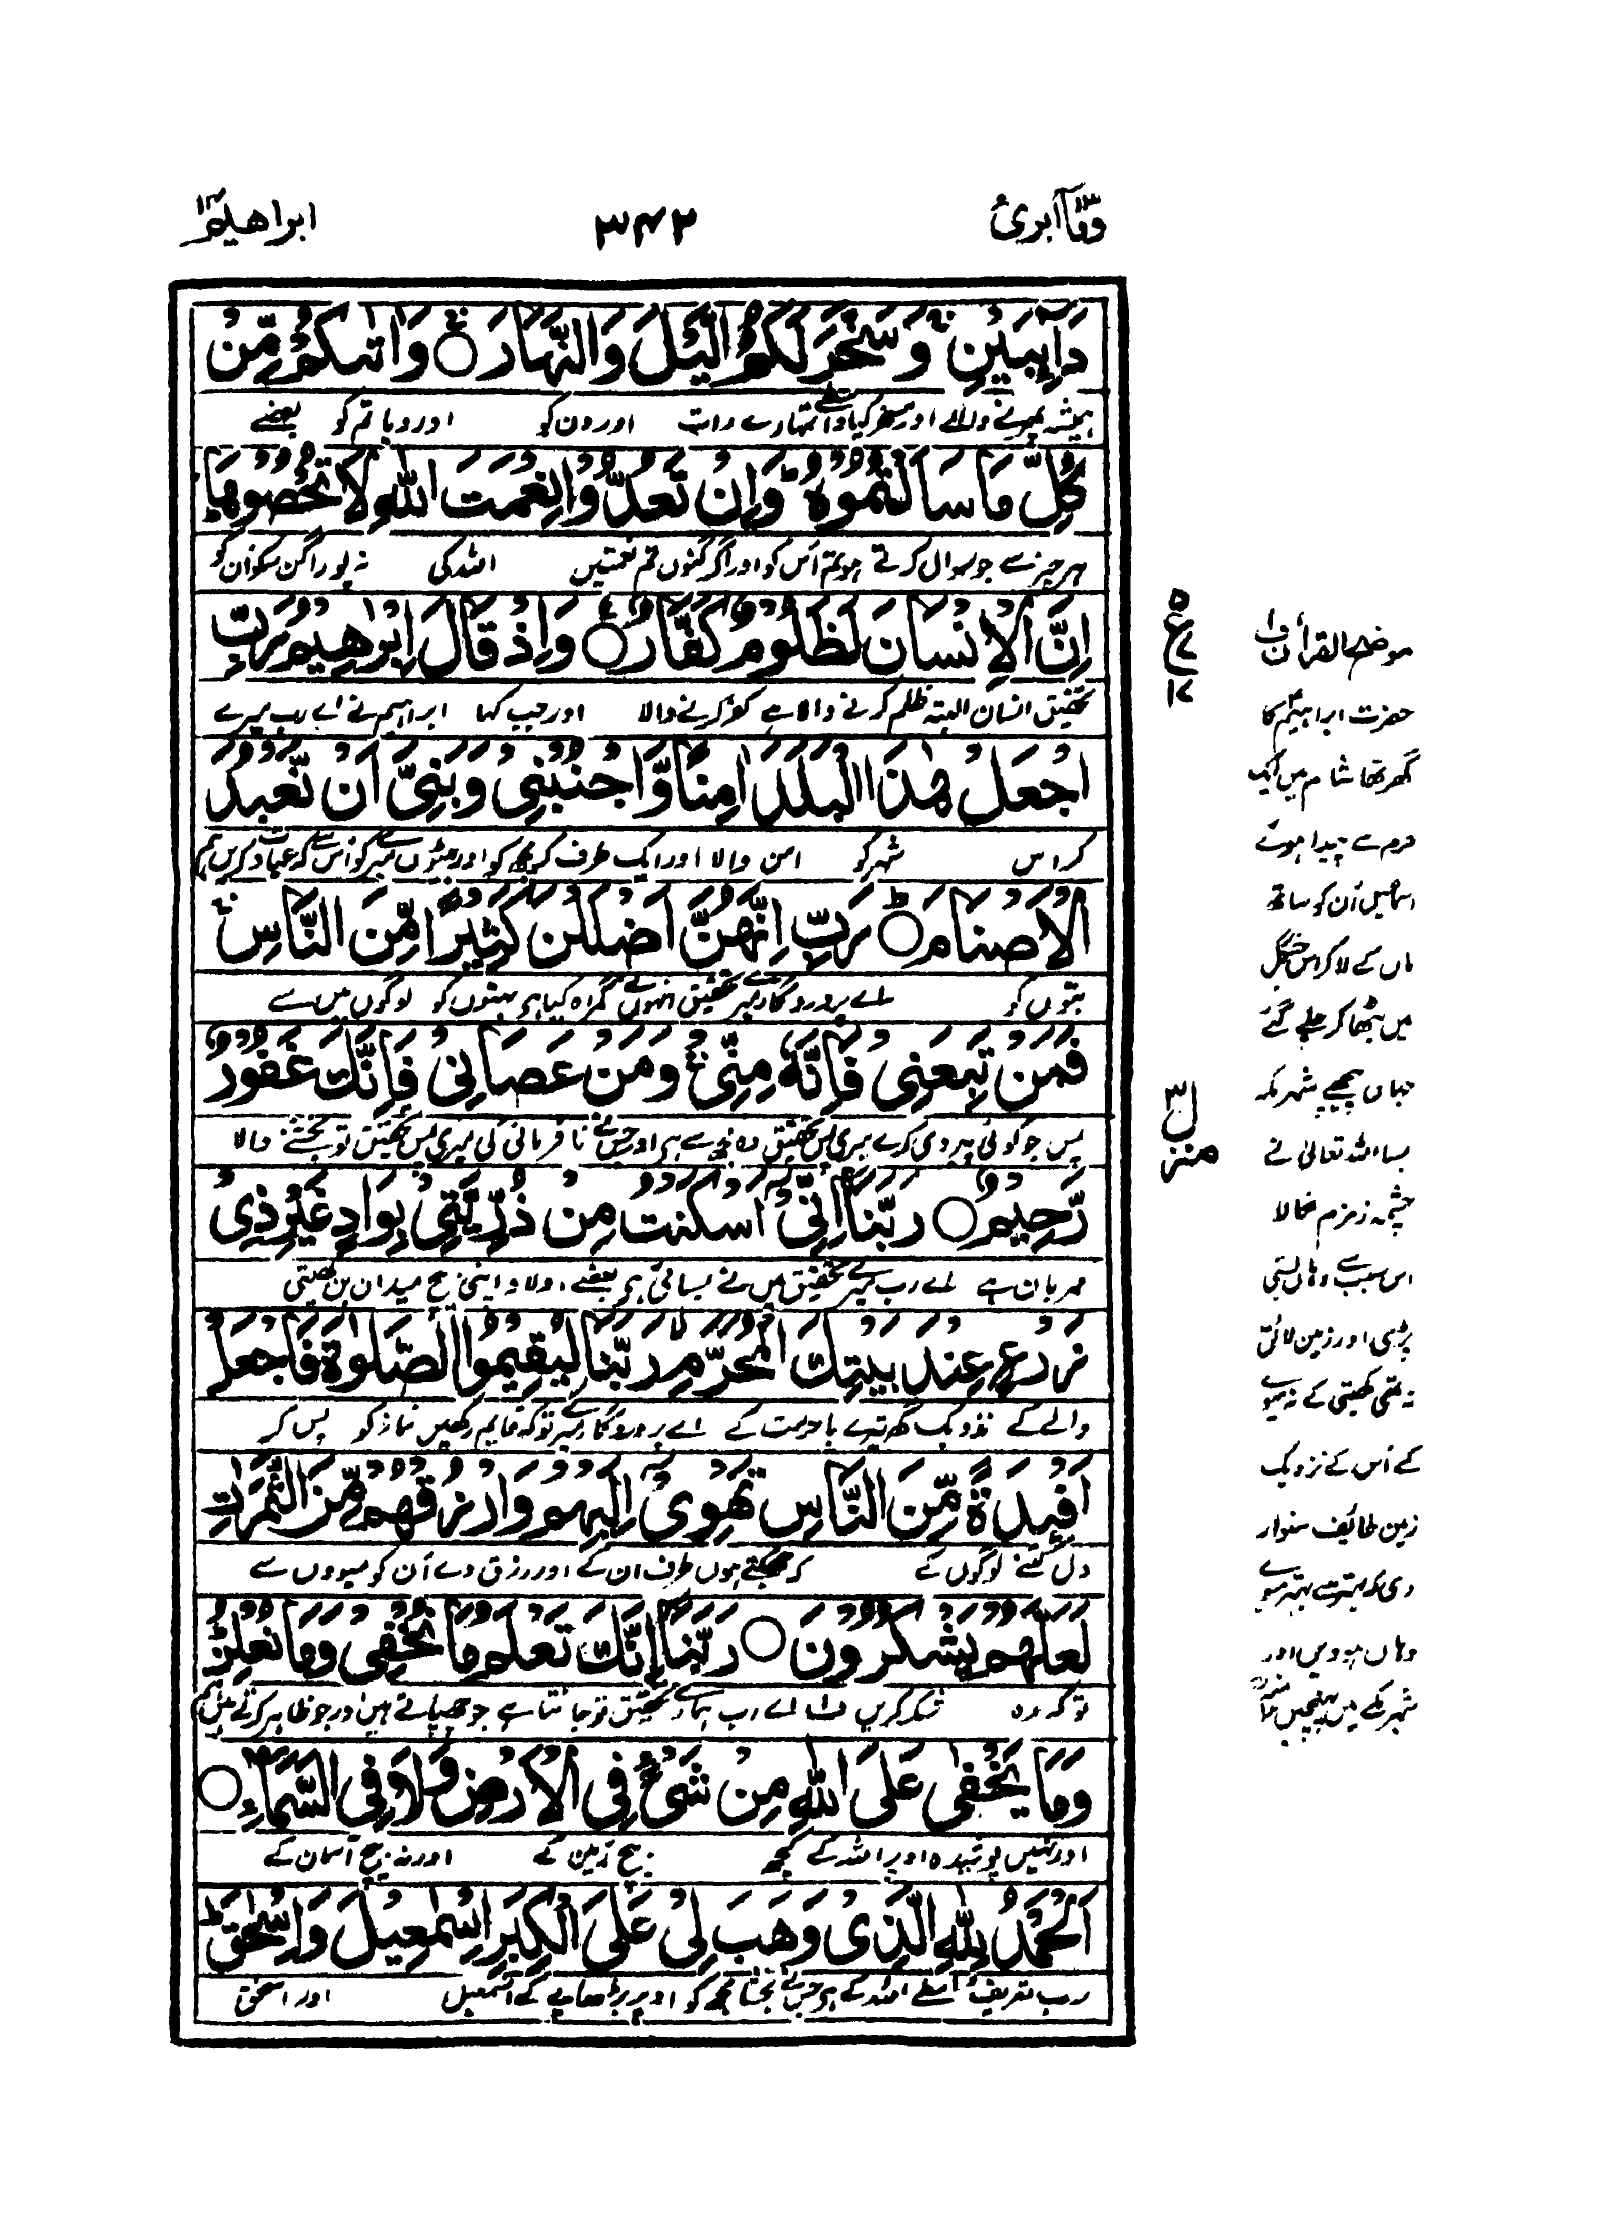 وما ابرئ ۱۳
۳۴۲
ابراهيم ۱۴
دَآئِبَيْنِ ۚ وَسَخَّرَ لَكُمُ الَّيْلَ وَالنَّهَارَ ۚ ○ وَاٰتٰىكُمْ مِّنْ
ہمیشہ پھرنے والے اور مسخر کیا واسطے تمہارے رات اور دن کو اور دیا تم کو بعضے
كُلِّ مَا سَاَلْتُمُوْهُ ؕ وَاِنْ تَعُدُّوْا نِعْمَتَ اللّٰهِ لَا تُحْصُوْهَا ؕ
ہر چیز سے جو سوال کرتے ہو تم اُس کو اور اگر گنوں تم نعمتیں اللہ کی نہ پورا گن سکو ان کو
اِنَّ الْاِنْسَانَ لَظَلُوْمٌ كَفَّارٌ ○ وَاِذْ قَالَ اِبْرٰهِيْمُ رَبِّ
تحقیق انسان البتہ ظلم کرنے والا ہے کفر کرنے والا اور جب کہا ابراہیم نے اے رب میرے
اجْعَلْ هٰذَا الْبَلَدَ اٰمِنًا وَّاجْنُبْنِيْ وَبَنِيَّ اَنْ نَّعْبُدَ
کر اس شہر کو امن والا اور ایک طرف کر مجھ کو اور بیٹوں میرے کو اس سے کہ عبادت کریں ہم
الْاَصْنَامَ ؕ ○ رَبِّ اِنَّهُنَّ اَضْلَلْنَ كَثِيْرًا مِّنَ النَّاسِ ۚ
بتوں کو اے پروردگار میرے تحقیق انہوں نے گمراہ کیا ہے بہتوں کو لوگوں میں سے
فَمَنْ تَبِعَنِيْ فَاِنَّهٗ مِنِّيْ ۚ وَمَنْ عَصَانِيْ فَاِنَّكَ غَفُوْرٌ
پس جو کوئی پیروی کرے میری پس تحقیق وہ مجھ سے ہے اور جس نے نافرمانی کی میری پس تحقیق تو بخشنے والا
رَّحِيْمٌ ○ رَبَّنَا اِنِّيْٓ اَسْكَنْتُ مِنْ ذُرِّيَّتِيْ بِوَادٍ غَيْرِ ذِيْ
مہربان ہے اے رب میرے تحقیق میں نے بسائی ہے بعضے اولاد اپنی بیچ میدان بن کھیتی
زَرْعٍ عِنْدَ بَيْتِكَ الْمُحَرَّمِ رَبَّنَا لِيُقِيْمُوا الصَّلٰوةَ فَاجْعَلْ
والے کے نزدیک گھر تیرے باحرمت کے اے پروردگار میرے تو کہ قایم رکھیں نماز کو پس کر
اَفْـِٕدَةً مِّنَ النَّاسِ تَهْوِيْٓ اِلَيْهِمْ وَارْزُقْهُمْ مِّنَ الثَّمَرٰتِ
دل کتنے لوگوں کے کہ جھکتے ہوں طرف ان کے اور رزق دے اُن کو میووں سے
لَعَلَّهُمْ يَشْكُرُوْنَ ○ رَبَّنَا اِنَّكَ تَعْلَمُ مَا نُخْفِيْ وَمَا نُعْلِنُ ؕ
تو کہ وہ شکر کریں اے رب ہمارے تحقیق تو جانتا ہے جو چھپاتے ہیں اور جو ظاہر کرتے ہیں
وَمَا يَخْفٰى عَلَى اللّٰهِ مِنْ شَيْءٍ فِي الْاَرْضِ وَلَا فِي السَّمَآءِ ○
اور نہیں پوشیدہ اوپر اللہ کے کچھ بیچ زمین کے اور نہ بیچ آسمان کے
اَلْحَمْدُ لِلّٰهِ الَّذِيْ وَهَبَ لِيْ عَلَى الْكِبَرِ اِسْمٰعِيْلَ وَاِسْحٰقَ ؕ
سب تعریف واسطے اللہ کے ہے جس نے بخشا مجھ کو اوپر بڑھاپے کے اسمعیل اور اسحٰق
ع
۵
۱۷
منزل ۳
موضح القرآن
حضرت ابراہیم کا
گھر تھا شام میں ایک
حرم سے پیدا ہوئے
اسمٰعیل اُن کو ساتھ
ماں کے لاکر اس جنگل
میں بٹھا کر چلے گئے
جہاں پیچھے شہر مکہ
بسا اللہ تعالیٰ نے
چشمہ زمزم نکالا
اس سبب سے وہاں بستی
پڑی اور زمین لائق
نہ تھی کھیتی کے نہ میوے
کے اُس کے نزدیک
زمین طائف سنوار
دی کہ بہتر سے بہتر میوے
وہاں ہوویں اور
شہر مکے میں پہنچیں